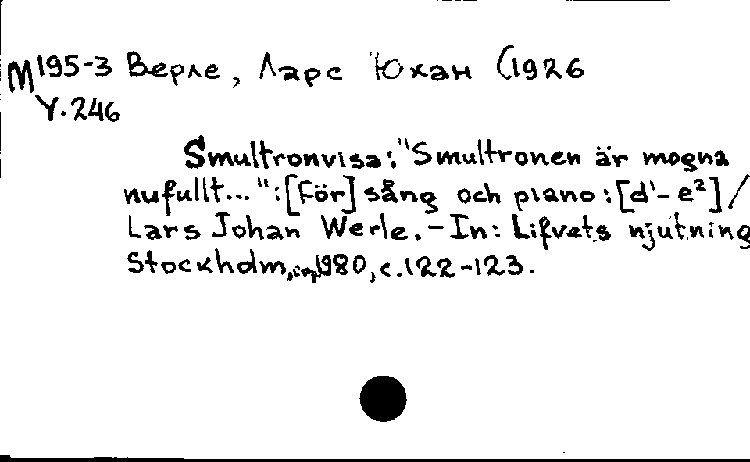 M195-3 Верле, Ларс Юхан (1926
Y.246
Smultronvisa: "Smultronen är mogna
nufullt... ": [För] sång och piano: [d¹-e²] /
Lars Johan Werle. - In: Lifvets njutning
Stockholm, 1980, с.122-123.